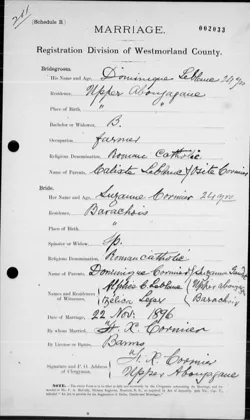 211
(Schedule B)
002033
MARRIAGE.
Registration Division of Westmorland County.
Bridegroom:
His Name and Age, Dominique Leblanc 24 yrs
Residence, Upper Aboujagane
Place of Birth, " "
Bachelor or Widower, B.
Occupation, farmer
Religious Denomination, Roman Catholic
Name of Parents, Calixte Leblanc / Osite Cormier
Bride.
Her Name and Age, Suzanne Cormier 24 yrs
Residence, Barachois
Place of Birth "
Spinster or Widow, Sp.
Religious Denomination, Roman catholic
Name of Parents, Dominique Cormier / Suzanne
Names and Residences of Witnesses, Alphée C Leblanc Upper aboujagane
Leger Barachois
Date of Marriage, 22 Nov. 1896
By whom Married, F. X. Cormier
By License or Banns, Banns
F. X. Cormier
Signature and P. O. Address of Clergyman, Upper Aboujagane